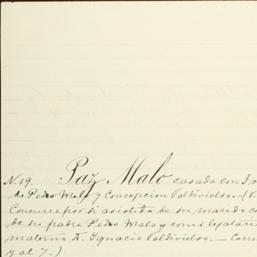 N. 19. Paz Malo casada con
de Pedro Malo y Concepcion Valdivielso. – (V.
Concurre por si asistida de su marido co
de su padre Pedro Malo y como legatari
materno D. Ignacio Valdivielso. – Corr
y al 7.)